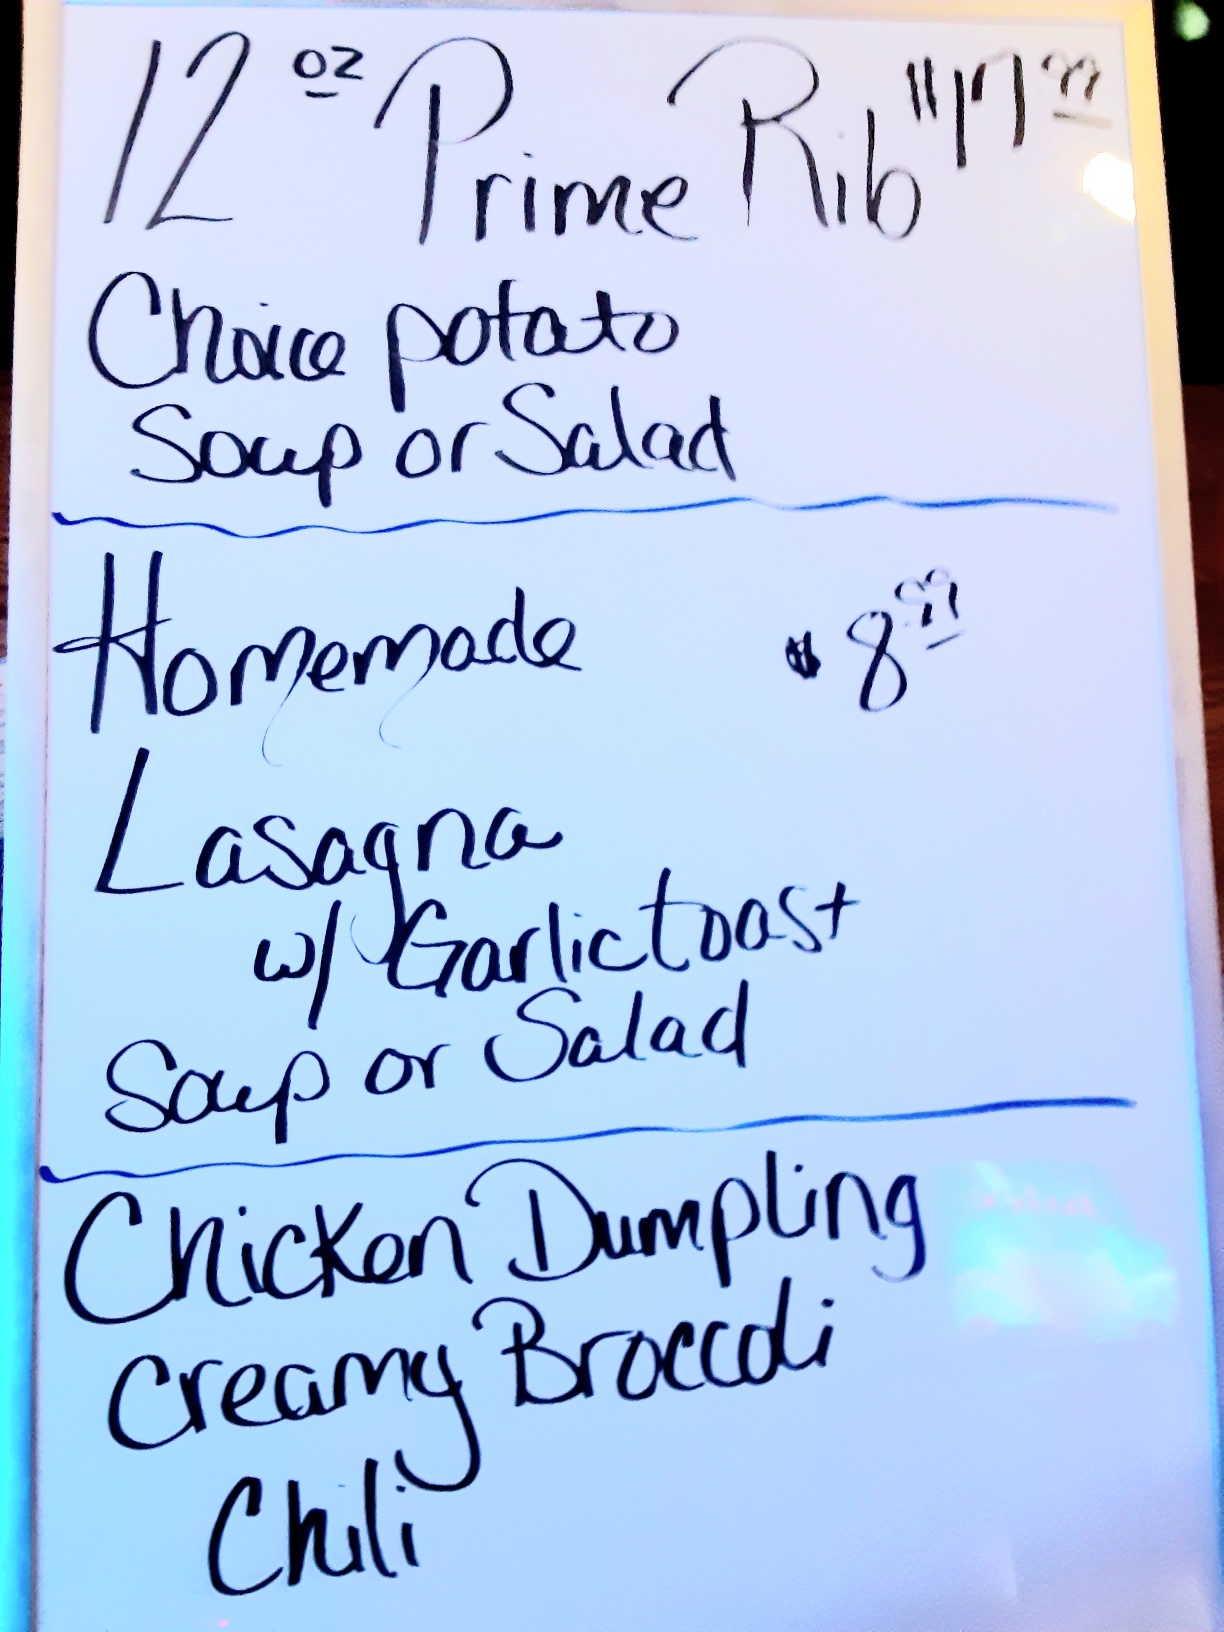 12 oz Prime Rib $17.99
Choice potato
Soup or Salad
Homemade $8.99
Lasagna
w/ Garlic toast
Soup or Salad
Chicken Dumpling
Creamy Broccoli
Chili